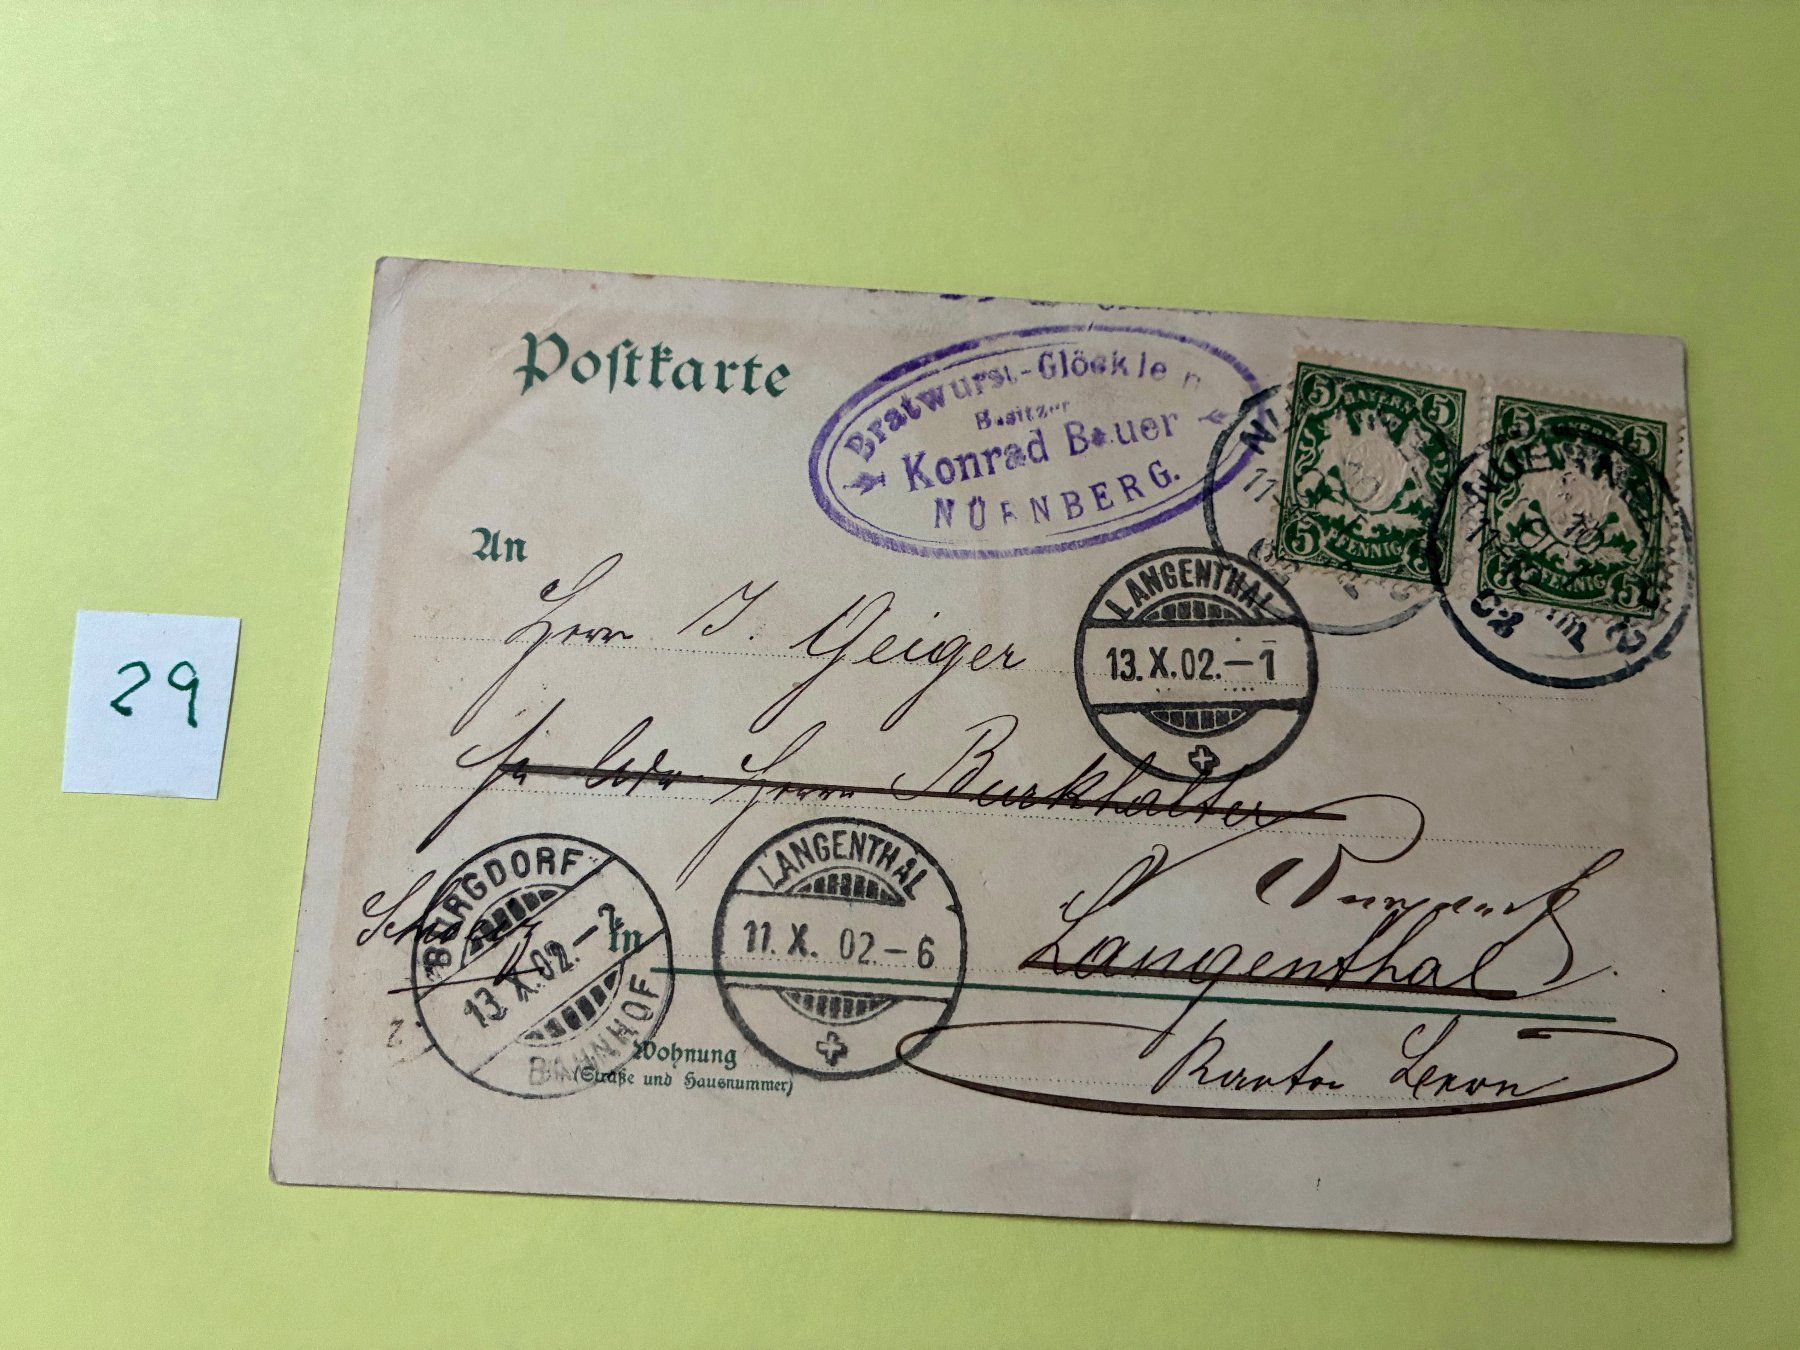 29
Postkarte
Bratwurst-Glöcklein
Besitzer
Konrad Bauer
NÜRNBERG.
5 BAYERN 5
5 PFENNIG 5
5 BAYERN 5
5 PFENNIG 5
An
Herrn J. Geiger
LANGENTHAL
13.X.02.-1
Herrn Burkhalter
BURGDORF
13.X.02.-2
BAHNHOF
LANGENTHAL
11.X.02-6
in
Langenthal
Wohnung
(Straße und Hausnummer)
Kanton Bern